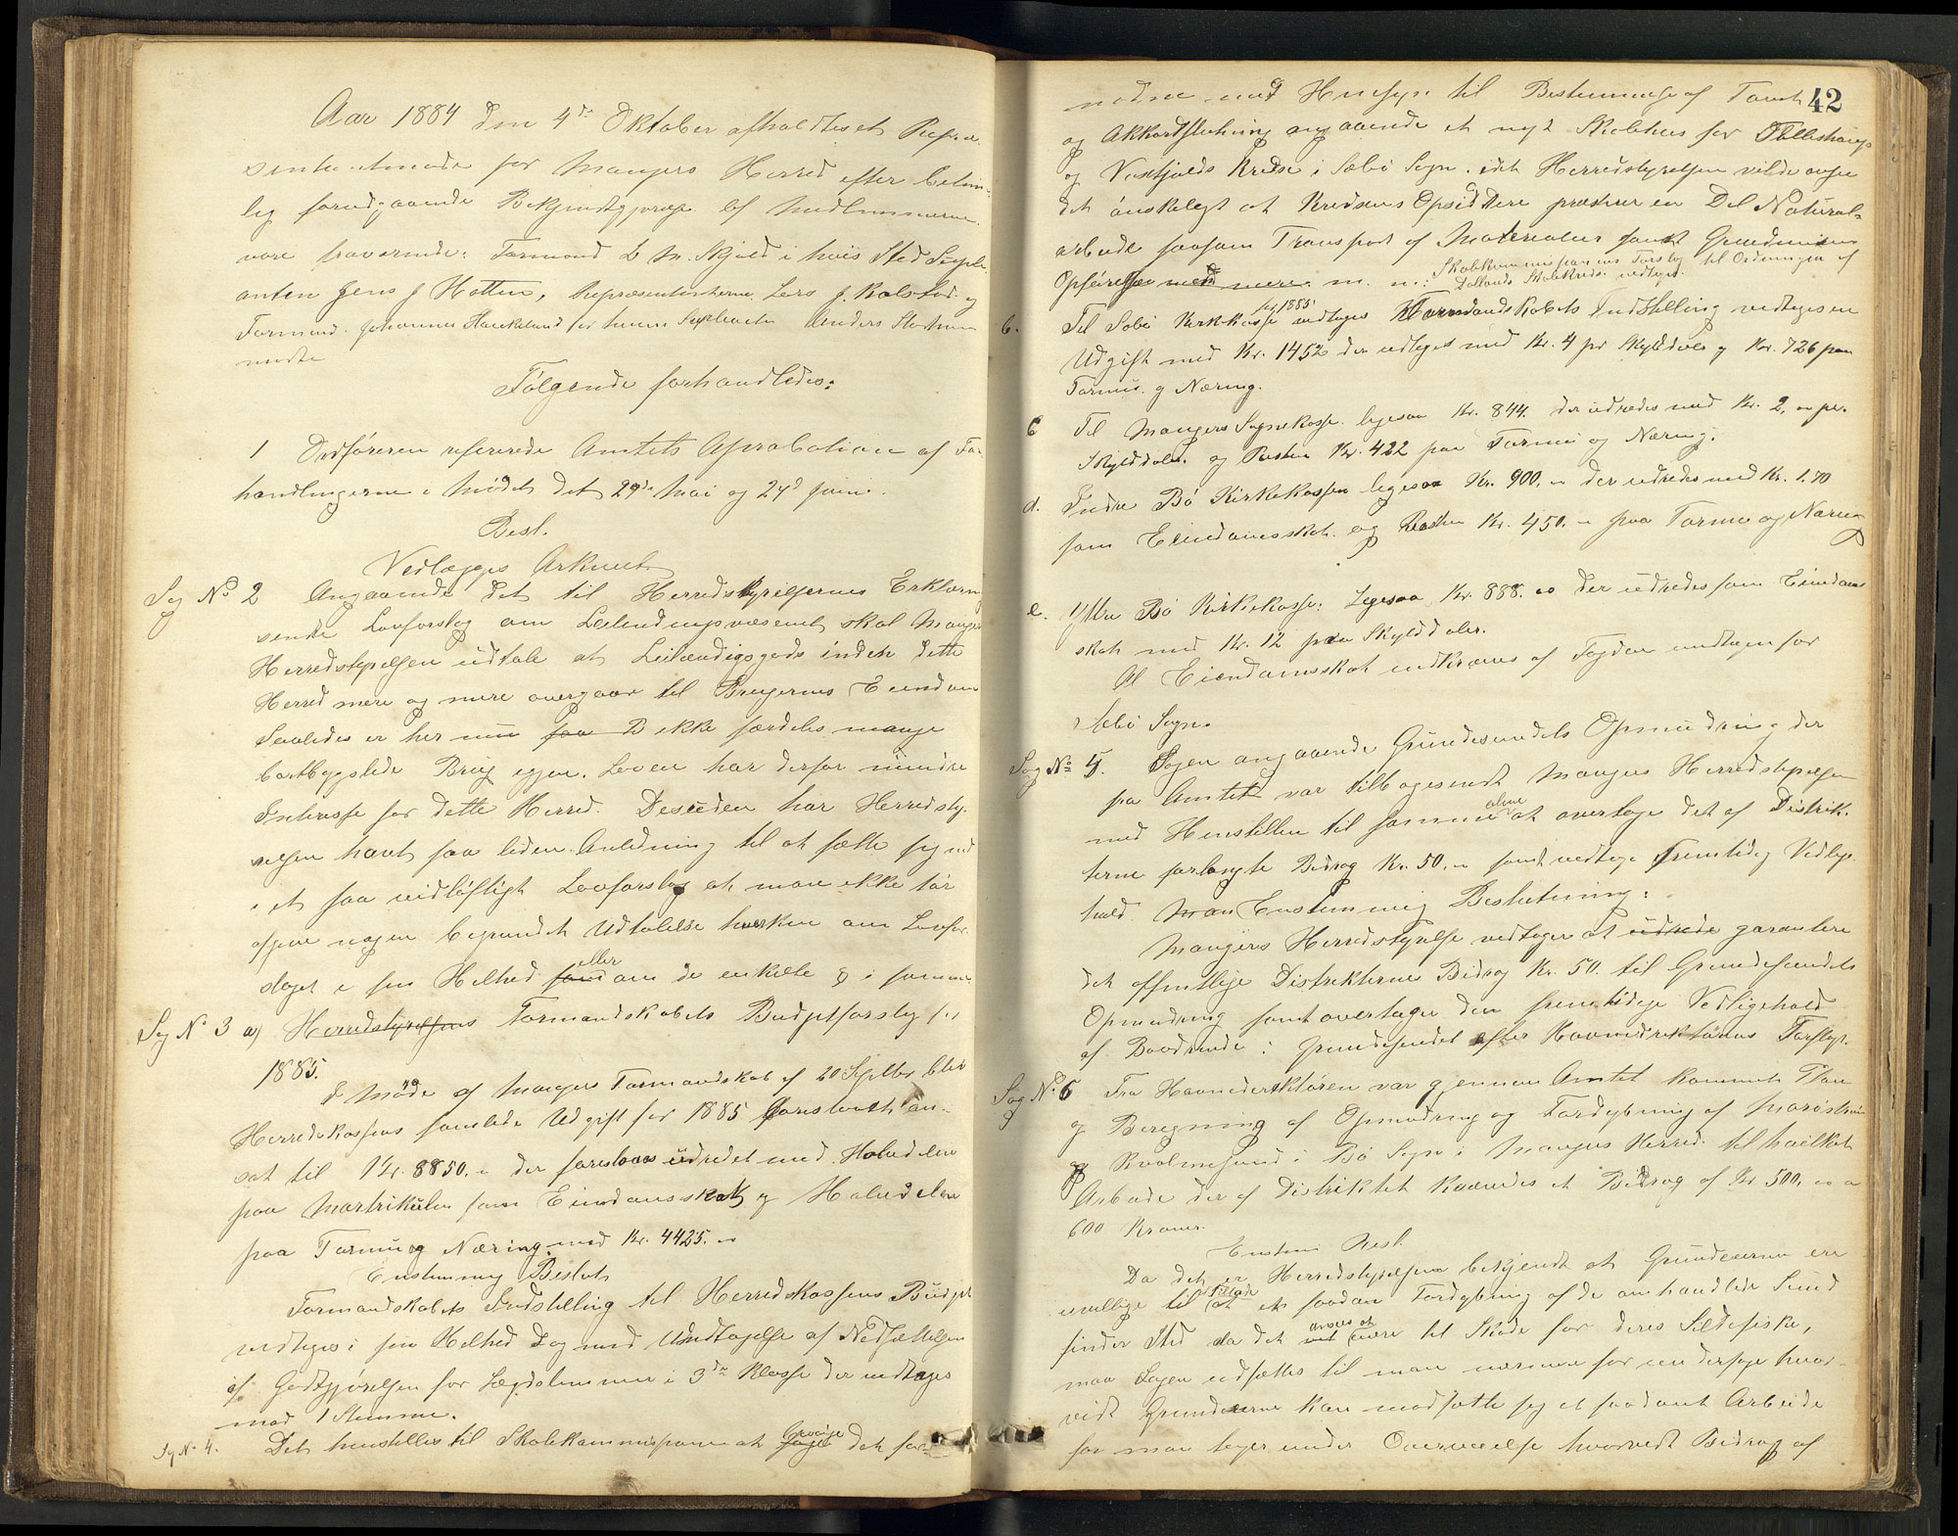 Aar 1884 den 4de Oktober afholdtes et Repræ-
sentantmøde for Mangers Herred efter betim-
lig forudgaaende Bekjendtgjørelse af Medlemmerne
vare fraværende: Formand L M. Skjold i hvis Sted Suple-
anten Jens J Hatten, Repræsentanterne Lars J. Kolstad og
Formand Johannes Havekeland for hvem Supleanten Anders
mødte
Følgende forhandledes:
1 Ordføreren refererede Amtets Aprobation af For-
handlingerne i Mødet det 29de Mai og 24d Juni.
Besl.
Vedlægges Arkivet
Sag No 2 Angaaende det til Herredstyrelsernes Erklæring
sendte Lovforslag om Leilendingsvæsenet skal Manger
Herredstyrelsen udtale at Leilændigsgods inden dette
Herred mere og mere overgaar til Brugernes Eiendom
Saaledes er her nu faa ikke særdeles mange
bortbygslede Brug igjen. Loven har derfor mindre
Interesse for dette Herred. Desuden har Herredsty-
relsen havt saa liden Anledning til at sætte sig ind
i et saa vidløftigt Lovforslag at man ikke tør
afgive nogen begrundet Udtalelse hverken om Lovfor-
slaget i sin Helhed eller om de enkelte § i samme
Sag No 3 a) Herredstyrelsens Formandskabets Budgetforslag for
1885.
I Møde af Mangers Formandskab af 20 Septbr blev
Herredskassens samlede Udgift for 1885 foreslaaet an-
sat til Kr. 8850,- der foreslaaes udredet med Halvdelen
paa Martrikulen som Eiendomsskat og Halvdelen
paa Formue og Næring med Kr. 4425.-
Enstemmig Beslut
Formandskabets Indstilling til Herredskassens Budget
vedtages i sin Helhed dog med Undtagelse af Nedsættelsen
af Godtgjørelsen for Lægdslemmer i 3die Klasse der vedtages
mod 1 Stemme.
Sag No 4. Det henstilles til Skolekommissionen at foretage det for-
42
nødne med Hensyn til Bestemmelse af Tomt
og Akkordslutning angaaende et nyt Skolehus for
og Vestfjelds Kreds i Sæbø Sogn. idet Herredstyrelsen vilde ansee
det ønskeligt at Kredsens Opsiddere præsterer en Del Natural-
arbeide saasom Transport af Materialier samt Grundmurens
Opførelse med mere m. m: Skolekommissionens Forslag til Ordningen af
Skolekreds vedtages.
b. Til Sæbø Kirkekasse for 1885 vedtages Formandskabets Indstilling vedtages en
Udgift med Kr. 1452 der udlignes med Kr. 4 pr Skylddaler og Kr. 726 paa
Formue og Næring.
c Til Mangers Sognekasse ligesaa Kr. 844. der udredes med Kr. 2,- pr.
Skylddaler og Resten Kr. 422 paa Formue og Næring.
d. Indre Bø Kirkekassen ligesaa Kr. 900,- der udredes med Kr. 1.70
som Eiendomsskat og Resten Kr. 450.- paa Formue og Næring
e. Yttre Bø Kirkekasse: Ligesaa Kr. 888.00 der udredes som Eiendoms
skat med Kr. 12 paa Skylddaler.
Al Eiendomsskat indkræves af Fogden undtagen for
Sæbø Sogn.
Sag No 5. Sagen angaaende Grundesundets Opmudring der
fra Amtet var tilbagesendt Mangers Herredstyrelsen
med Henstillen til samme alene at overtage det af Distrik-
terne forlangte Bidrag Kr. 50,- samt vedtage fremtidig Vedlige-
hold. Man Enstemmig Beslutning:
Mangers Herredstyrelse vedtager at udrede garantere
det offentlige Distrikternes Bidrag Kr. 50. til Grundesundets
Opmudring samt overtager den fremtidige Vedligehold
af Baadrende i Grundesundet efter Havnedirektørens Forslag.
Sag No 6 Fra Havnedirektøren var gjennem Amtet kommet Plan
og Beregning af Opmudring og Fordybning af Marøstrøm
og Kvolmesund i Bø Sogn i Mangers Herred til hvilket
Arbeide der af Distriktet krævedes et Bidrag af Kr 500,00 a
600 Kroner.
Enstem Besl.
Da det er Herredstyrelsen bekjendt at Grundeierne ere
uvillige til at tilade et saadan Fordybning af de omhandlede Sund
finder Sted da det ansees at være til Skade for deres Sildefiske,
maa Sagen udsættes til man nærmere faar undersøge hvor-
vidt Grundeierne kan modsætte sig et saadant Arbeide
før man tager under Overveielse hvorvidt Bidrag af